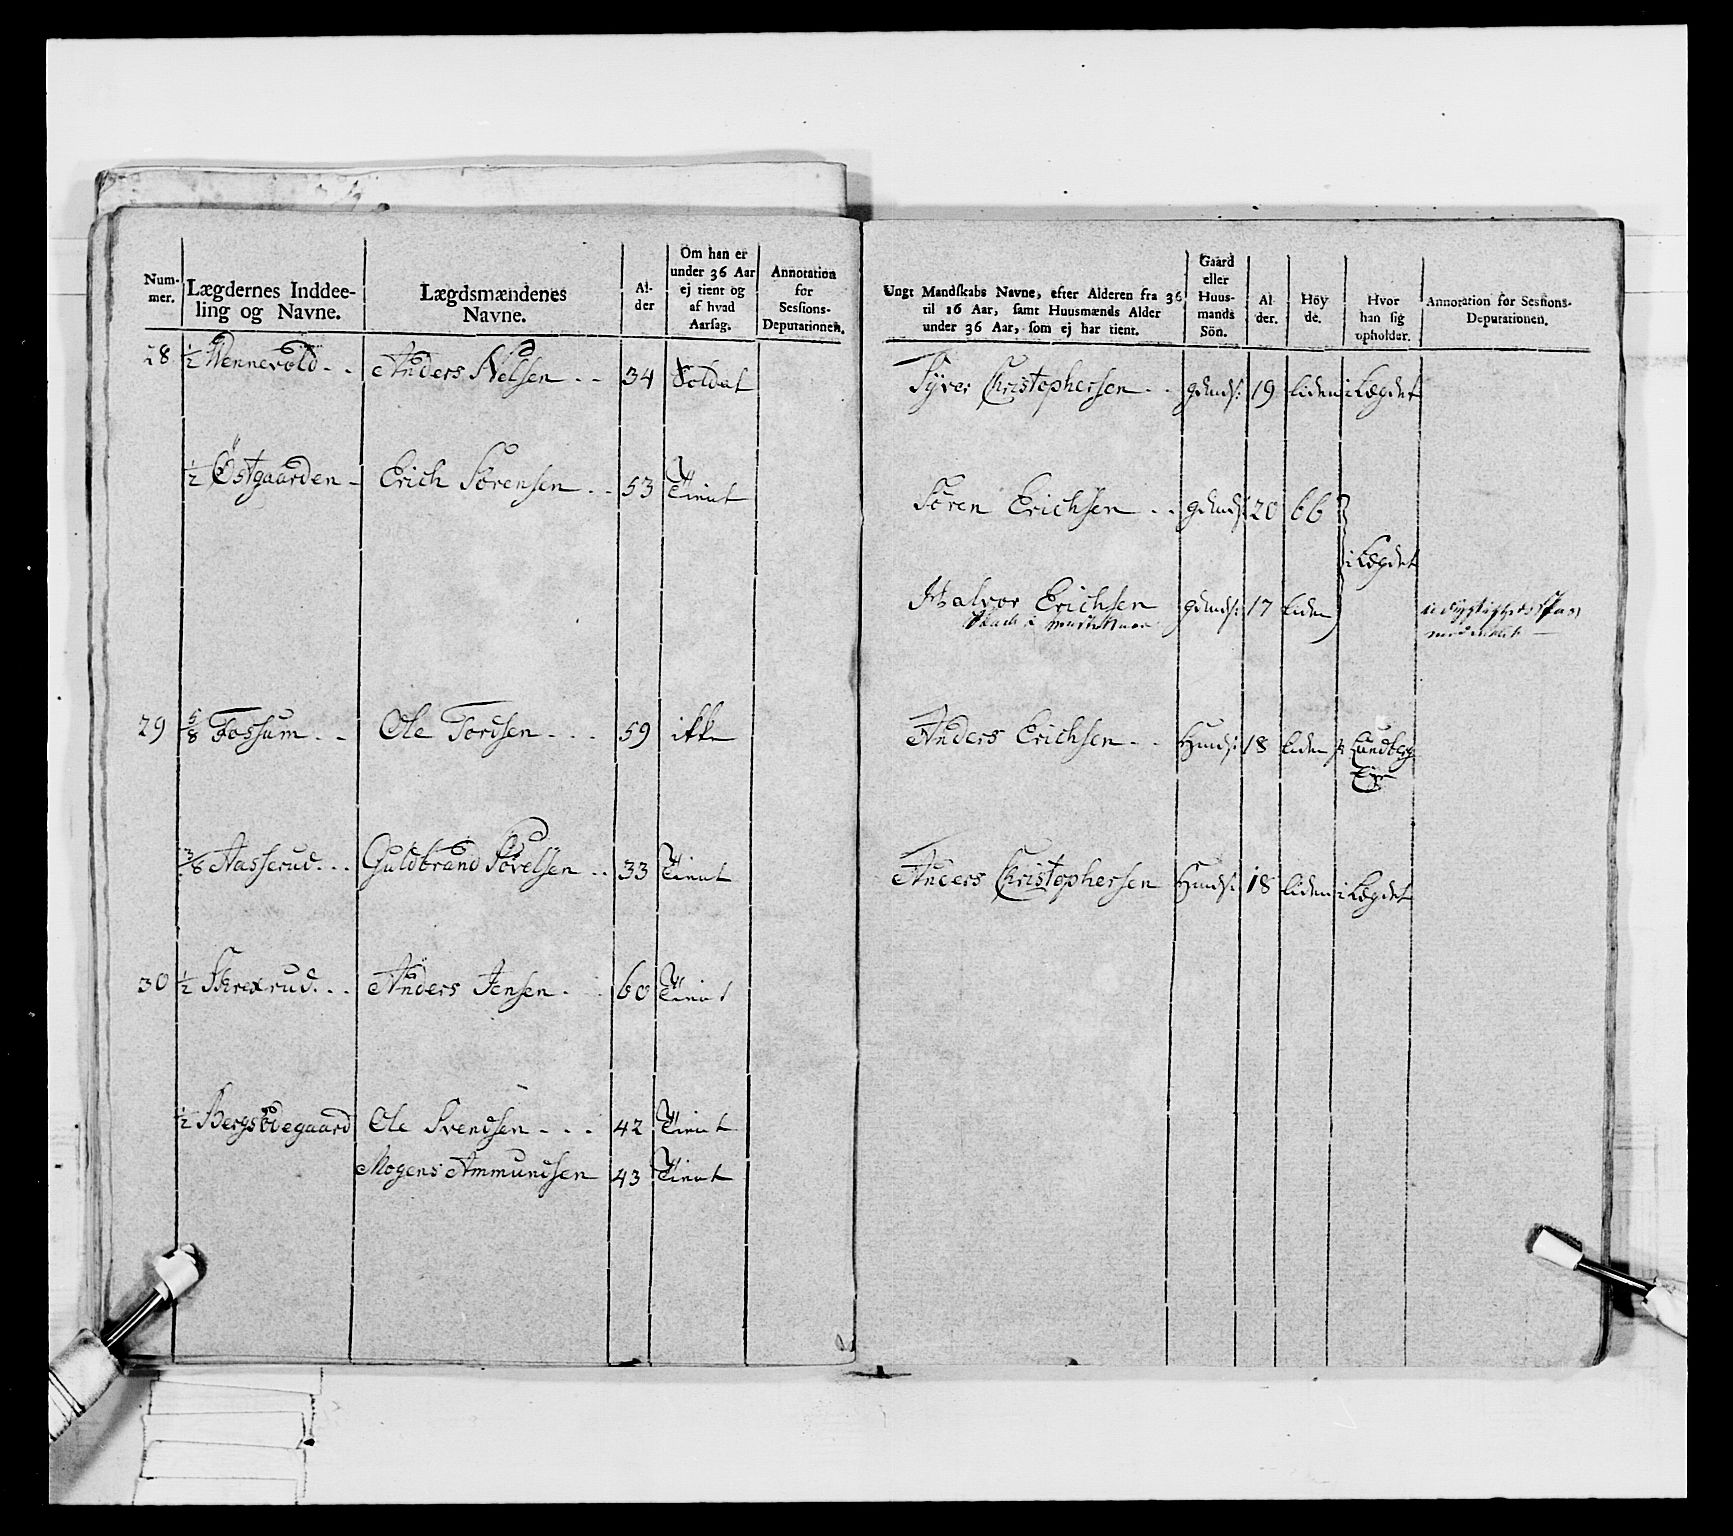 Num-
mer.
Lægdernes Inddee-
ling og Navne.
Lægdsmændenes
Navne.
Al-
der
Om han er
under 36 Aar
ej tient og
af hvad
Aarsag.
Annotation
for
Sessions-
Deputationen.
28 1/2 Wennevold - - Anders Nelsen - - 34 Soldat
1/2 Östgaarden - Erich Sörensen - - 53 Tient
29 5/8 Fossum - - Ole Tordsen - - - 59 ikke
3/8 Aasserud - - - Guldbrand Povelsen - - 33 Tient
30 1/2 Skrexrud - - - Anders Jensen - 60 Tient
1/2 Bergsödegaard Ole Svendsen - - - 42 Tient
Mogens Ammundsen 43 Tient
Ungt Mandskabs Navne, efter Alderen fra 36
til 16 Aar, samt Huusmænds Alder
under 36 Aar, som ej har tient.
Gaard
eller
Huus-
mands
Sön.
Al
der.
Höy
de.
Hvor
han sig
opholder.
Annotation for Sessions-
Deputationen.
Syver Christophersen - - gdmds: 19 liden i Lægdet
Sören Erichsen - - gdmds: 20 66
i Lægdet
Halvor Erichsen gdmds: 17 liden
Anders Erichsen - - Hmds: 18 liden Lundberg
Anders Christophersen Hmds: 18 liden i Lægdet